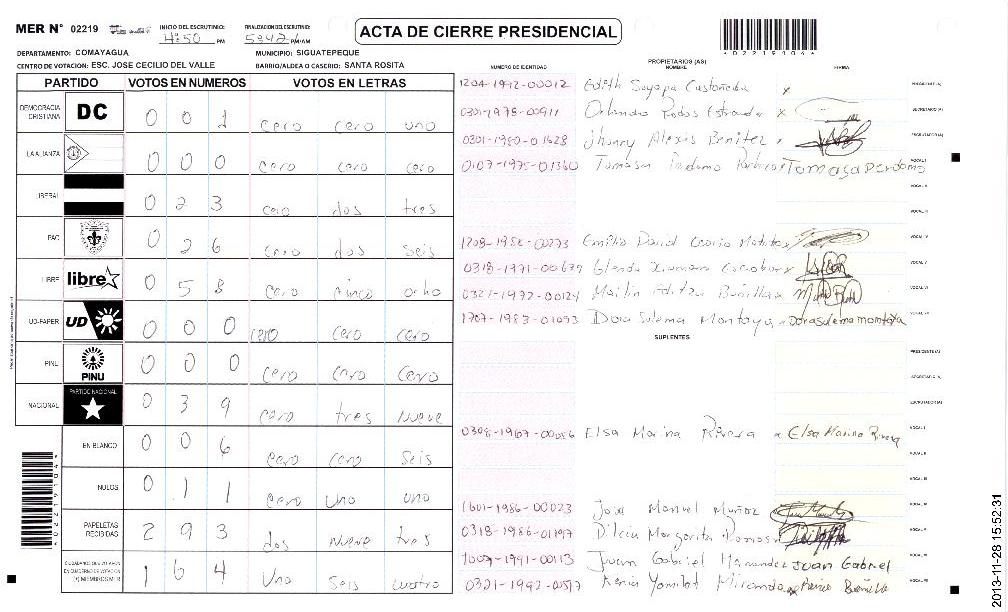 MER N° 02219 INICIO DEL ESCRUTINIO: 4:50 PM FINALIZACION DEL ESCRUTINIO: PM/AM ACTA DE CIERRE PRESIDENCIAL
DEPARTAMENTO: COMAYAGUA MUNICIPIO: SIGUATEPEQUE
CENTRO DE VOTACION: ESC. JOSE CECILIO DEL VALLE BARRIO/ALDEA O CASERIO: SANTA ROSITA
PROPIETARIOS (AS)
NUMERO DE IDENTIDAD NOMBRE FIRMA
PARTIDO VOTOS EN NUMEROS VOTOS EN LETRAS
DEMOCRACIA CRISTIANA DC 0 0 1 cero cero uno
LA ALIANZA 0 0 0 cero cero cero
LIBERAL 0 2 3 cero dos tres
PAC 0 2 6 cero dos seis
LIBRE libre 0 5 8 cero cinco ocho
UD-FAPER UD 0 0 0 cero cero cero
PINU PINU 0 0 0 cero cero cero
NACIONAL PARTIDO NACIONAL 0 3 9 cero tres nueve
EN BLANCO 0 0 6 cero cero seis
NULOS 0 1 1 cero uno uno
PAPELETAS RECIBIDAS 2 9 3 dos nueve tres
CIUDADANOS QUE VOTARON EN CUADERNO DE VOTACION (+) MIEMBROS MER 1 6 4 uno seis cuatro
1204-1992-00012 Edith Suyapa Castañeda x PRESIDENTE (A)
0301-1978-00911 Orlando Rodas Estrada x SECRETARIO (A)
0301-1980-01628 Jhonny Alexis Benitez x ESCRUTADOR (A)
0107-1975-01360 Tomasa Perdomo Tomasa Perdomo VOCAL I
VOCAL II
VOCAL III
Emilio David VOCAL IV
0318-1971-00639 Glenda VOCAL V
0321-1972-00124 VOCAL VI
1707-1983-01093 Dora Sulema Montoya x Dorasulema montoya
SUPLENTES
PRESIDENTE (A)
SECRETARIO (A)
ESCRUTADOR (A)
Elsa Marina Rivera x Elsa Marina Rivera VOCAL I
VOCAL II
VOCAL III
1601-1986-00023 Jose Manuel Muñoz
0318-1986-01197 Dilcia Margarita
Juan Gabriel Hernandez Juan Gabriel
Miranda
4022191044
4022191044
2013-11-28 15:52:31